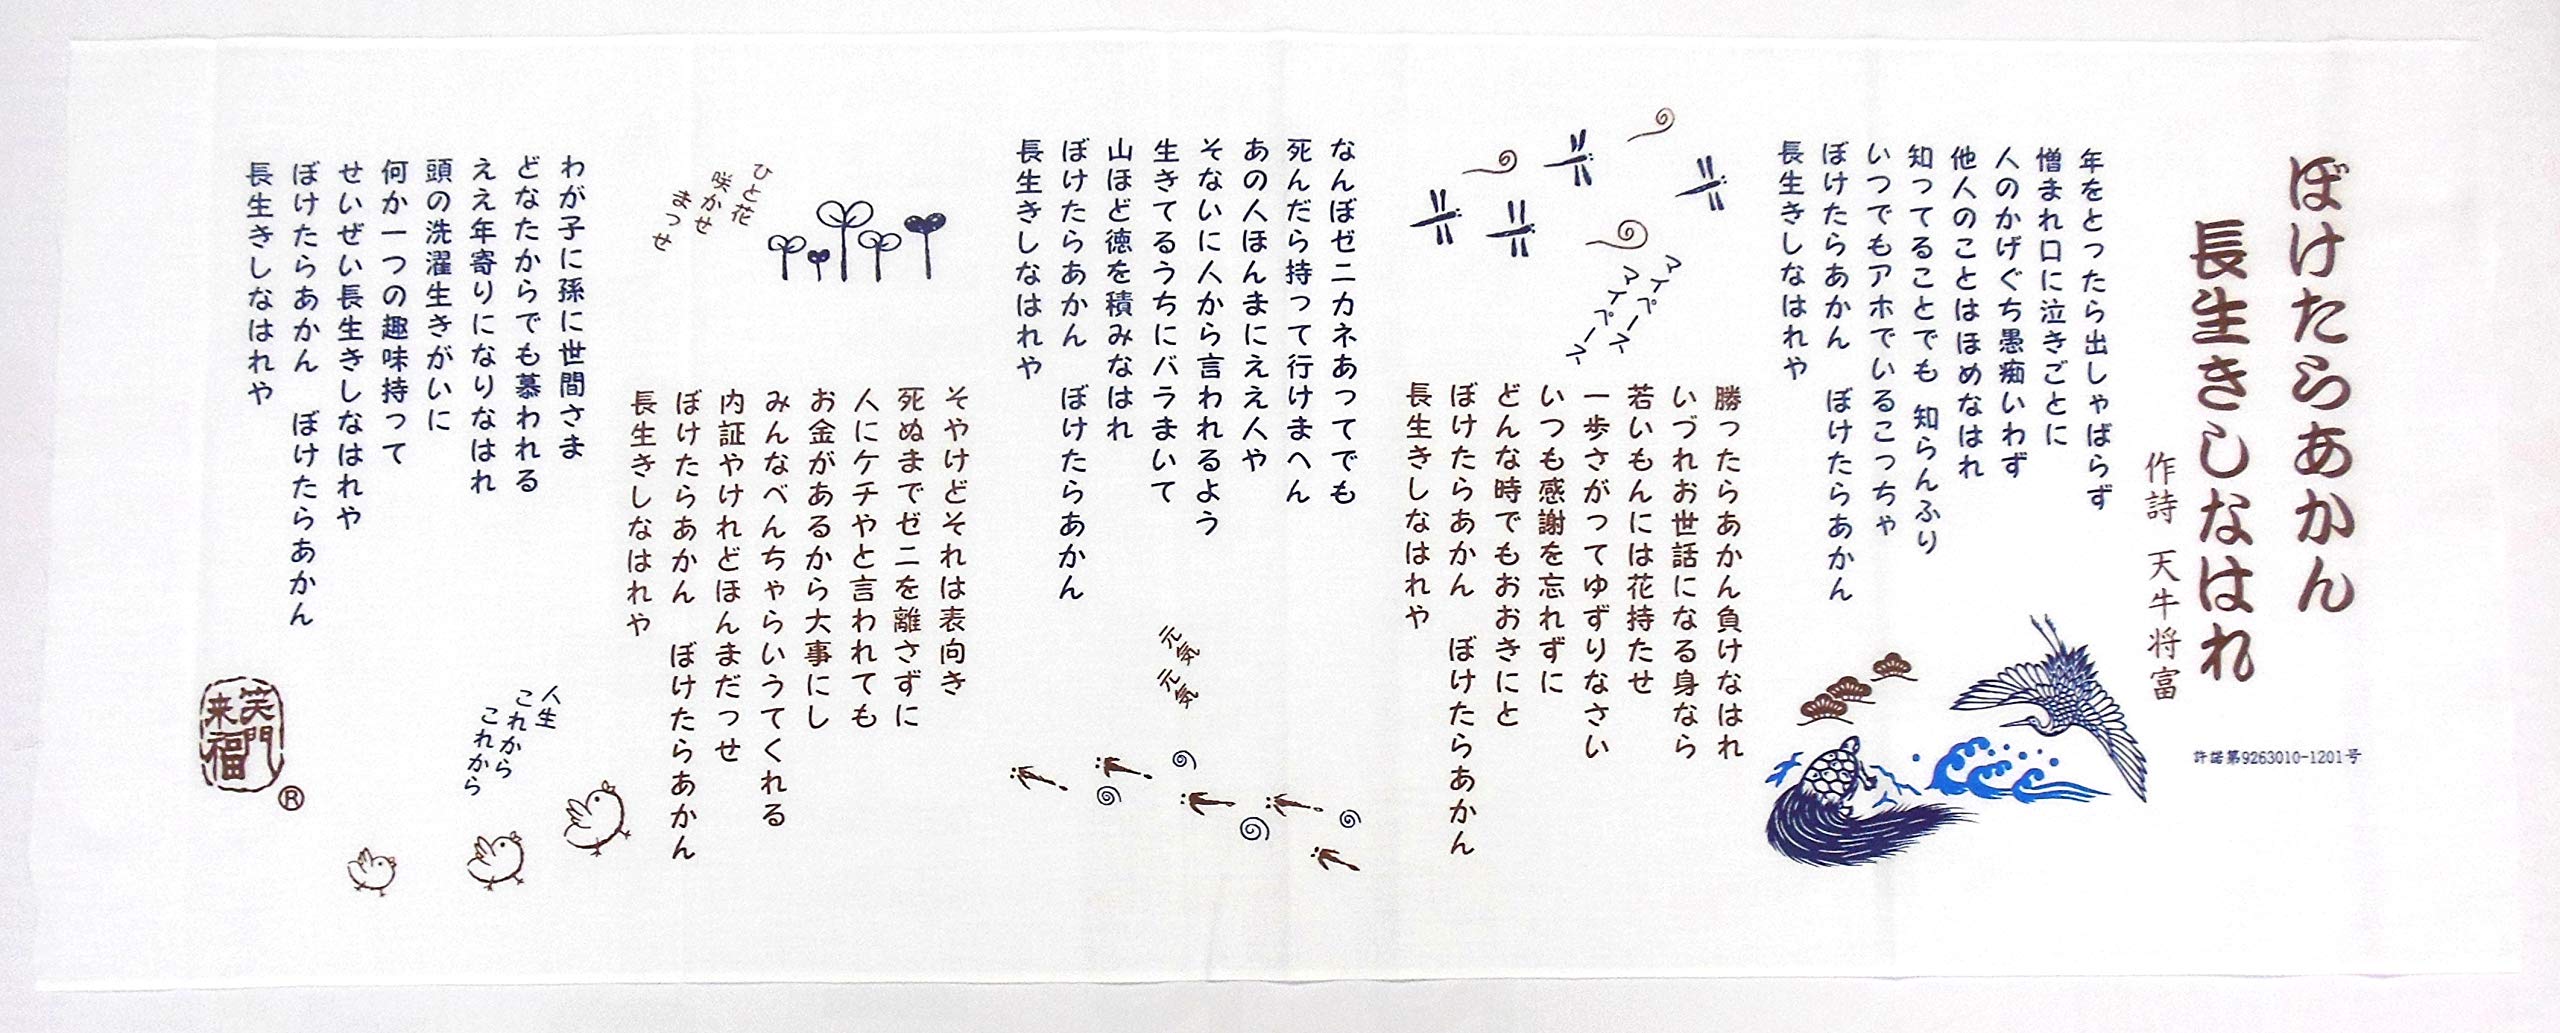 ぼけたらあかん
長生きしなはれ
作詩 天牛将富
許諾第9263010-1201号
年をとったら出しゃばらず
憎まれ口に泣きごとに
人のかげぐち愚痴いわず
他人のことはほめなはれ
知ってることでも 知らんふり
いつでもアホでいるこっちゃ
ぼけたらあかん ぼけたらあかん
長生きしなはれや
マイペース
マイペース
勝ったらあかん負けなはれ
いづれお世話になる身なら
若いもんには花持たせ
一歩さがってゆずりなさい
いつも感謝を忘れずに
どんな時でもおおきにと
ぼけたらあかん ぼけたらあかん
長生きしなはれや
なんぼゼニカネあってでも
死んだら持って行けまへん
あの人ほんまにええ人や
そないに人から言われるよう
生きてるうちにバラまいて
山ほど徳を積みなはれ
ぼけたらあかん ぼけたらあかん
長生きしなはれや
元気
元気
そやけどそれは表向き
死ぬまでゼニを離さずに
人にケチやと言われても
お金があるから大事にし
みんなべんちゃらいうてくれる
内証やけれどほんまだっせ
ぼけたらあかん ぼけたらあかん
長生きしなはれや
ひと花
咲かせ
まっせ
わが子に孫に世間さま
どなたからでも慕われる
ええ年寄りになりなはれ
頭の洗濯生きがいに
何か一つの趣味持って
せいぜい長生きしなはれや
ぼけたらあかん ぼけたらあかん
長生きしなはれや
人生
これから
これから
笑門
来福
®